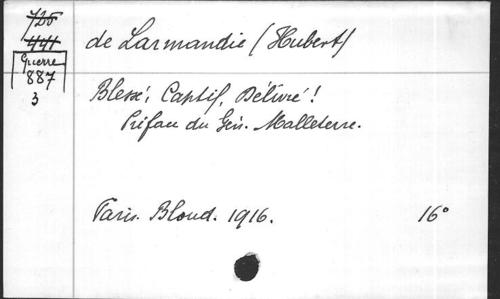 726
441
Guerre
887
3
de Larmandie (Hubert)
Blessé, Captif, Délivré!
Préface du Gén. Malleterre.
Paris. Bloud. 1916. 16°